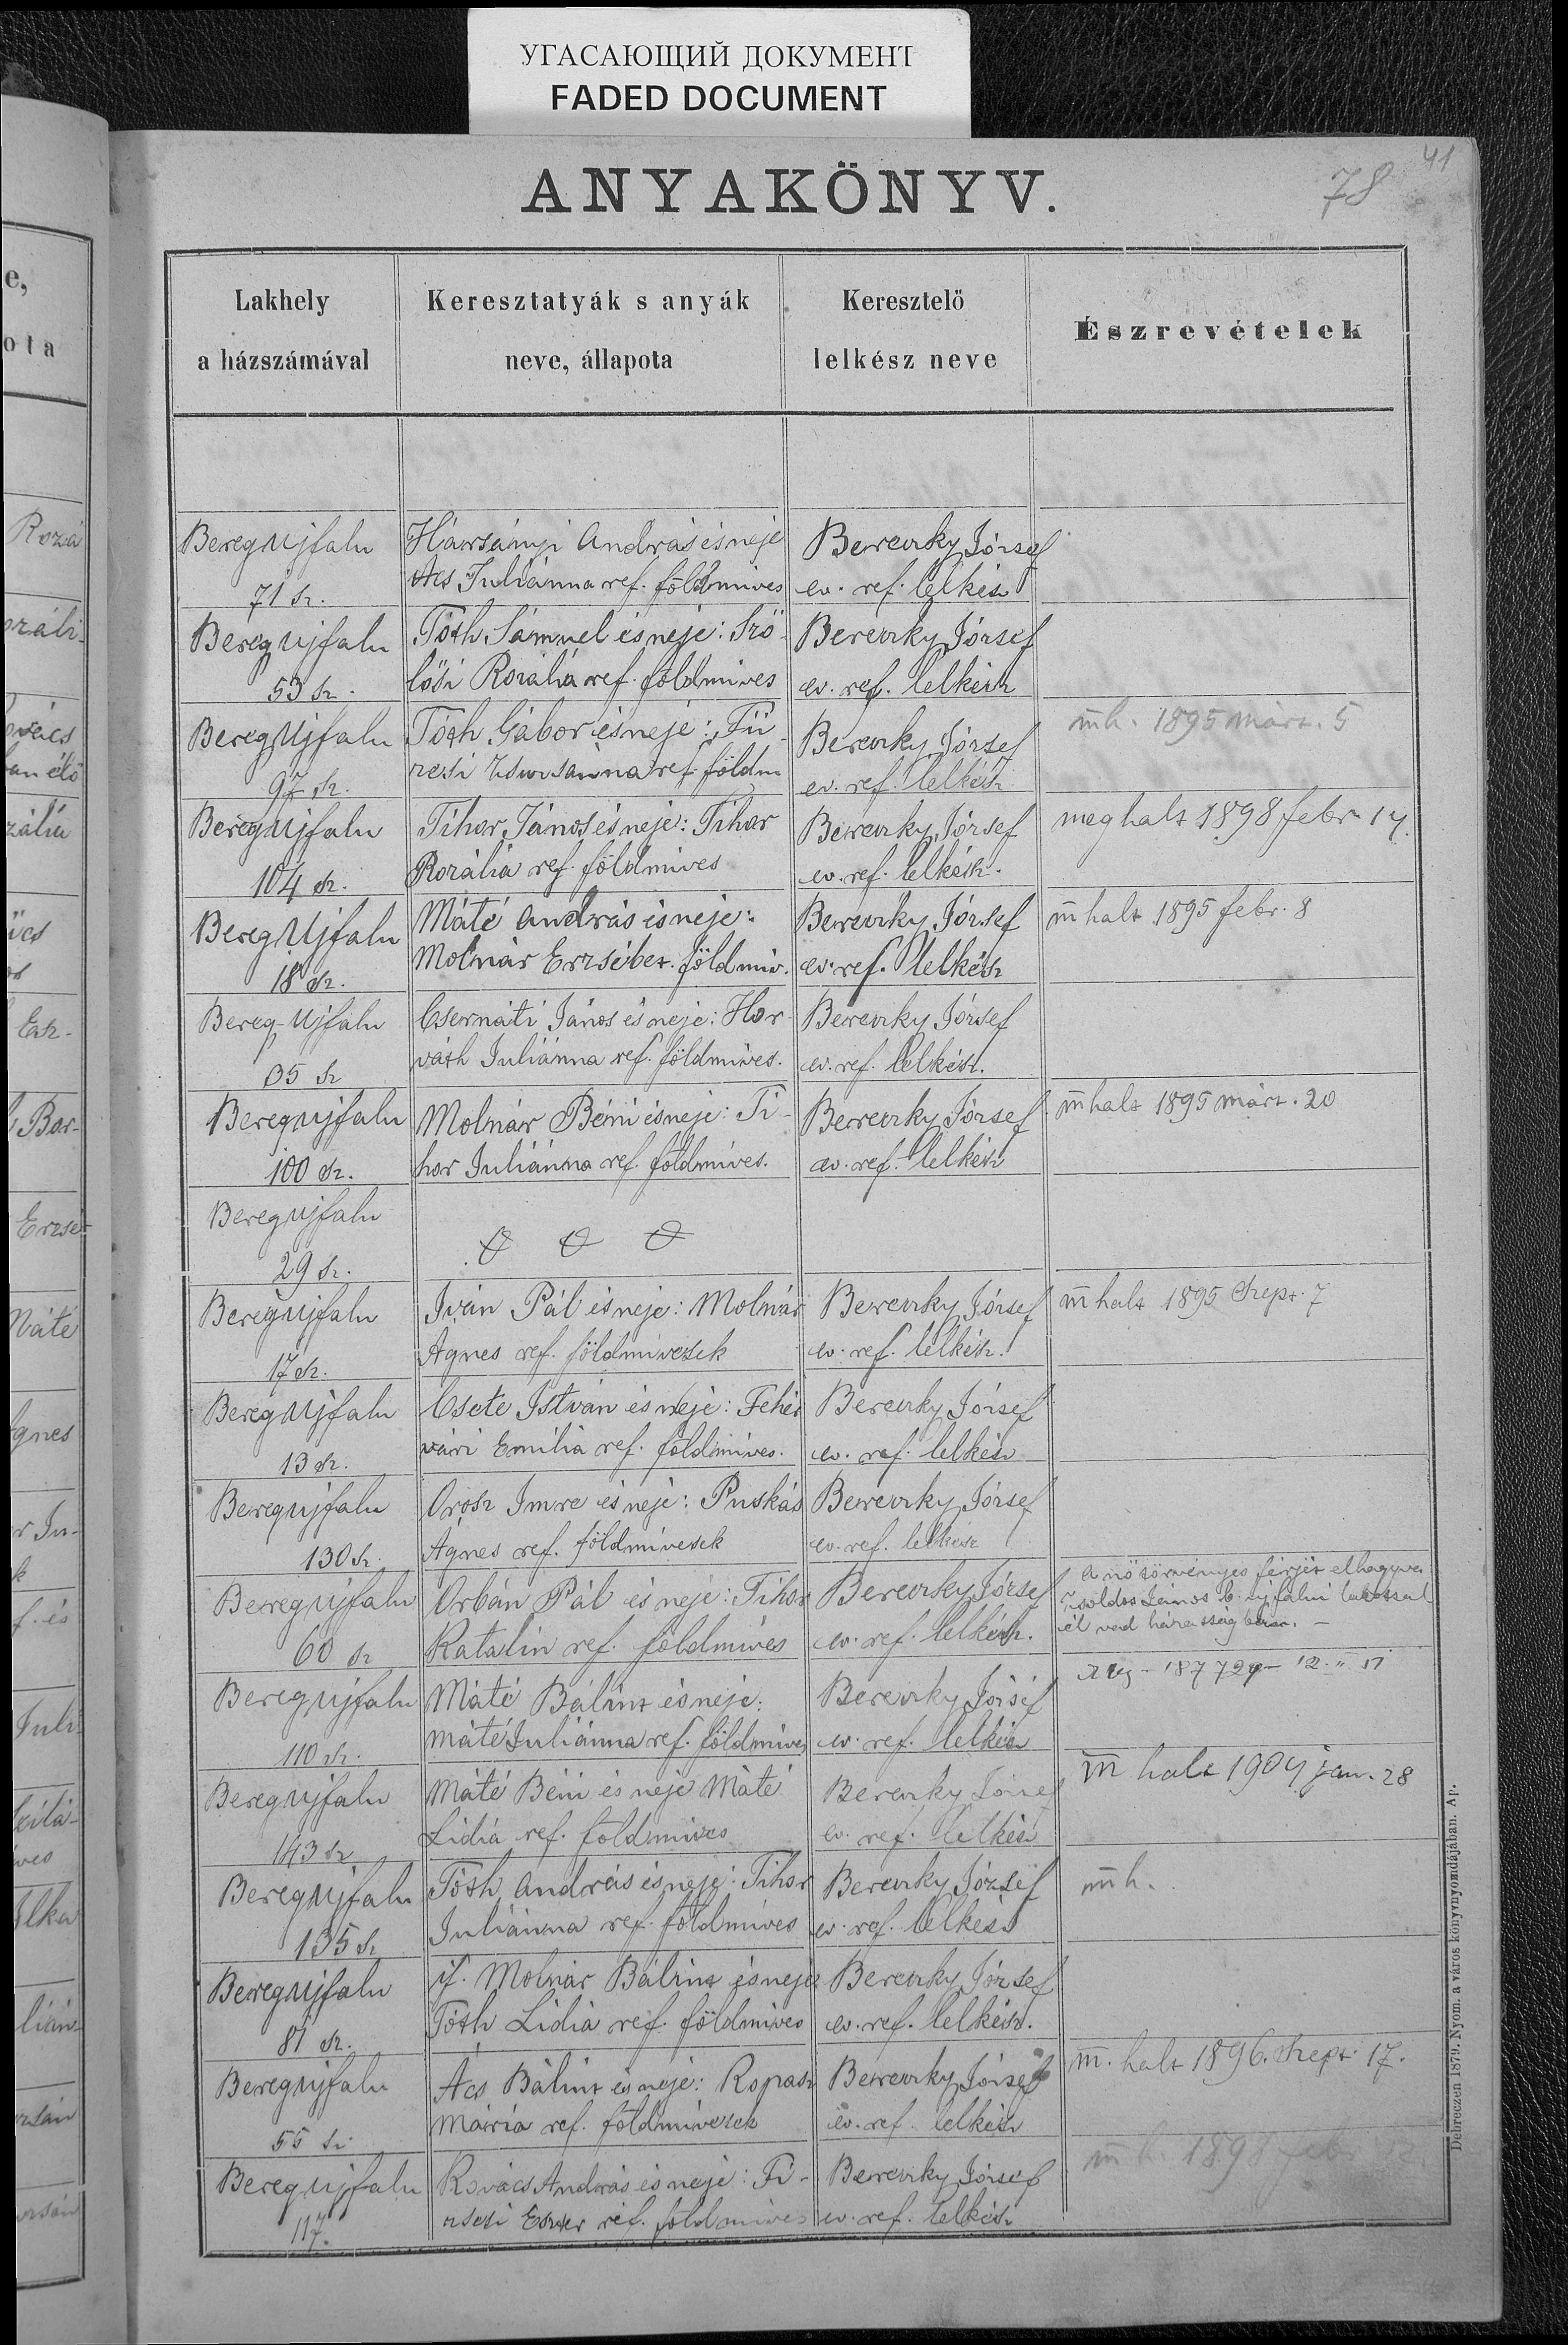 УГАСАЮЩИЙ ДОКУМЕНТ
FADED DOCUMENT
41
78
ANYAKÖNYV.
Lakhely
a házszámával
Keresztatyák s anyák
neve, állapota
Keresztelő
lelkész neve
Észrevételek
Beregujfalu
71 sz.
Harsányi András és neje
Ács Juliánna ref. földmives
Bereczky József
ev. ref. lelkész
Beregujfalu
53 sz.
Tóth Sámuel és neje: Sző-
lősi Rozália ref. földmives
Bereczky József
ev. ref. lelkész
Beregujfalu
97 sz.
Tóth Gábor és neje: Fü-
zesi Zsuzsánna ref. földm
Bereczky József
ev. ref. lelkész
mh. 1895 márt. 5
Beregujfalu
104 sz.
Tihor János és neje: Tihor
Rozália ref. földmives
Bereczky József
ev. ref. lelkész.
meghalt 1898 febr 14.
Beregujfalu
18 sz.
Máté András és neje:
Molnár Erzsébet. földmiv.
Bereczky József
ev. ref. lelkész
mhalt 1895 febr. 8
Bereg-Ujfalu
35 sz
Csernáti János és neje: Hor-
váth Juliánna ref. földmives.
Bereczky József
ev. ref. lelkész.
Beregujfalu
100 sz.
Molnár Béni és neje: Ti-
hor Juliánna ref. földmives.
Bereczky József
ev. ref. lelkész
mhalt 1895 márt. 20
Beregujfalu
29 sz.
Beregujfalu
17 sz.
Iván Pál és neje: Molnár
Ágnes ref. földmivesek
Bereczky József
ev. ref. lelkész.
mhalt 1895 Szept. 7
Beregujfalu
13 sz.
Csete István és neje: Fehér
vári Emilia ref. földmives.
Bereczky József
ev. ref. lelkész
Beregujfalu
130 sz.
Orosz Imre és neje: Puskás
Ágnes ref. földmivesek
Bereczky József
ev. ref. lelkész
Beregujfalu
60 sz
Orbán Pál és neje: Tihor
Katalin ref. földmives
Bereczky József
ev. ref. lelkész.
A nő törvényes férjét elhagyva
Zsoldos János b. ujfalui lakossal
él vad házasságban. –
Beregujfalu
110 sz.
Máté Bálint és neje:
Máté Juliánna ref. földmives
Bereczky József
ev. ref. lelkész
Beregujfalu
143 sz
Máté Béni és neje Máté
Lidia ref. földmives
Bereczky József
ev. ref. lelkész
m halt 1904 jan. 28
Beregujfalu
135 sz
Tóth András és neje: Tihor
Juliánna ref. földmives
Bereczky József
ev. ref. lelkész
mh.
Beregujfalu
81 sz.
if. Molnár Bálint és neje
Tóth Lidia ref. földmives
Bereczky József
ev. ref. lelkész.
Beregujfalu
55 sz
Ács Bálint és neje: Kopasz
Mária ref. földmivesek
Bereczky József
ev. ref. lelkész
m. halt 1896. Szept. 17.
Beregujfalu
117.
Kovács András és neje: Fü-
zesi Eszter ref. földmives
Bereczky József
ev. ref. lelkész
m h. 1898 febr
Debreczen 1879. Nyom. a város könyvnyomdájában. Ap.
Rozá
ozáli-
ovács
zália
Esz-
Bor-
Erzsé-
Máté
Ágnes
r Ju-
f. és
Juli-
Ilka
lián-